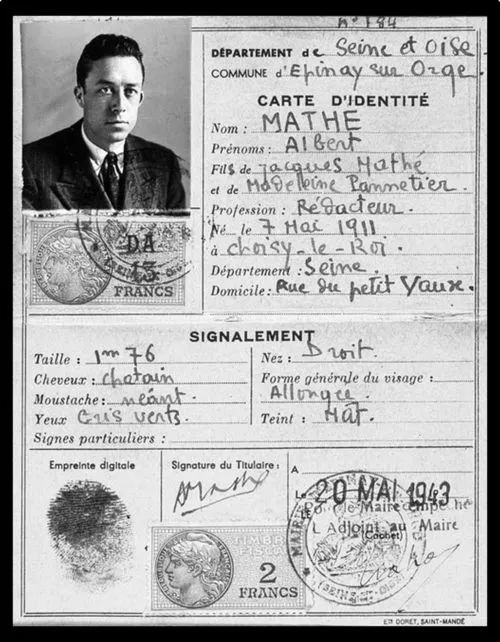 N° 184
DÉPARTEMENT de Seine et Oise
COMMUNE d'Epinay sur Orge.
CARTE D'IDENTITÉ
Nom : MATHE
Prénoms : Albert
Fils de Jacques Mathé
et de Madeleine Pannetier.
Profession : Rédacteur.
Né le 7 Mai 1911
à Choisy-le-Roi.
Département : Seine.
Domicile : Rue du petit Vaux.
DA
13
FRANCS
SIGNALEMENT
Taille : 1m 76
Cheveux : chatain
Moustache : néant
Yeux Gris verts.
Signes particuliers :
Nez : Droit.
Forme générale du visage :
Allongée
Teint : Mat.
Empreinte digitale
Signature du Titulaire :
A Mathé
TIMBRE
FISCAL
2
FRANCS
A
Le 20 MAI 1943
Po le Maire empêché
L'Adjoint au Maire
(Cachet)
MAIRIE
SEINE-ET-OISE
Ets DORET, SAINT-MANDÉ